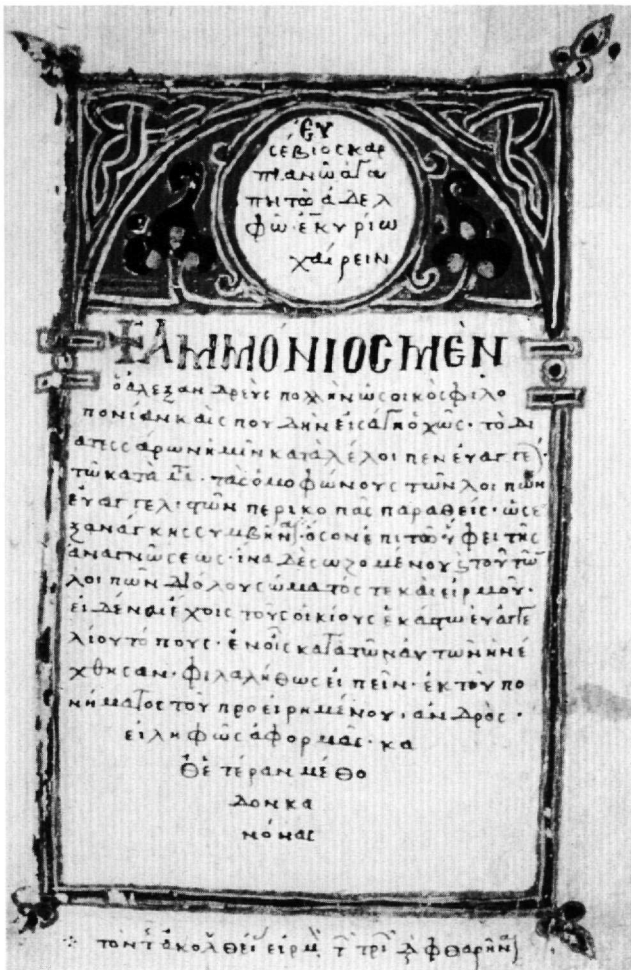 ΕΥ
CΕΒΙΟC ΚΑΡ
ΠΙΑΝΩ ΑΓΑ
ΠΗΤΩ ΑΔΕΛ
ΦΩ ΕΝ ΚΥΡΙΩ
ΧΑΙΡΕΙΝ
ΑΜΜΩΝΙΟC ΜΕΝ
ὁ ἀλεξανδρεὺς πολλὴν ὡς οἰκὸς φιλο
πονίαν καὶ σπουδὴν εἰσαγηοχὼς· τὸ δι
ατεσσάρων ἡμῖν καταλέλοιπεν ἐυαγγέ
τῶν κατὰ τὰς ὁμοφώνους τῶν λοιπῶν
ἐυαγγελιστῶν περικοπὰς παραθείς· ὡς ἐ
ξανάγκης συμβῆναι· ὅσον ἐπι τῶ ὕφει τῆς
ἀναγνώσεως· ἵνα δὲ σωζομένου τοῦ τῶν
λοιπῶν διόλου σώματός τε καὶ εἱρμοῦ·
εἰδέναι ἔχοις τοὺς οἰκίους ἑκάστου ἐυαγγε
λίου τόπους· ἐν οἷς κατα τῶν αυτῶν ἠνέ
χθησαν· φιλαλήθως εἰπεῖν· ἐκ τοῦ πο
νήματος τοῦ προειρημένου ἀνδρὸς·
εἰληφὼς ἀφορμάς· κα
θ ἑτέραν μέθο
δον κα
νόνας